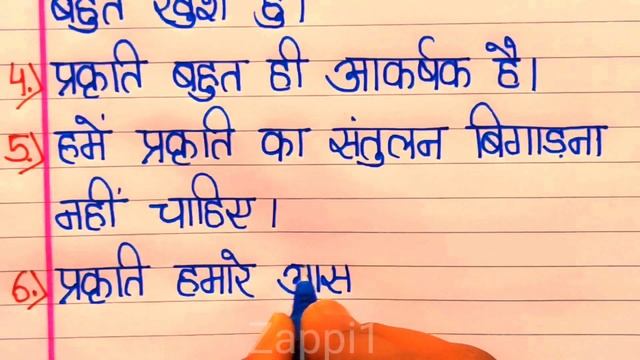 बहुत खुश हूँ।
4.) प्रकृति बहुत ही आकर्षक है।
5.) हमें प्रकृति का संतुलन बिगाड़ना
नहीं चाहिए।
6.) प्रकृति हमारे आस
Zappi1